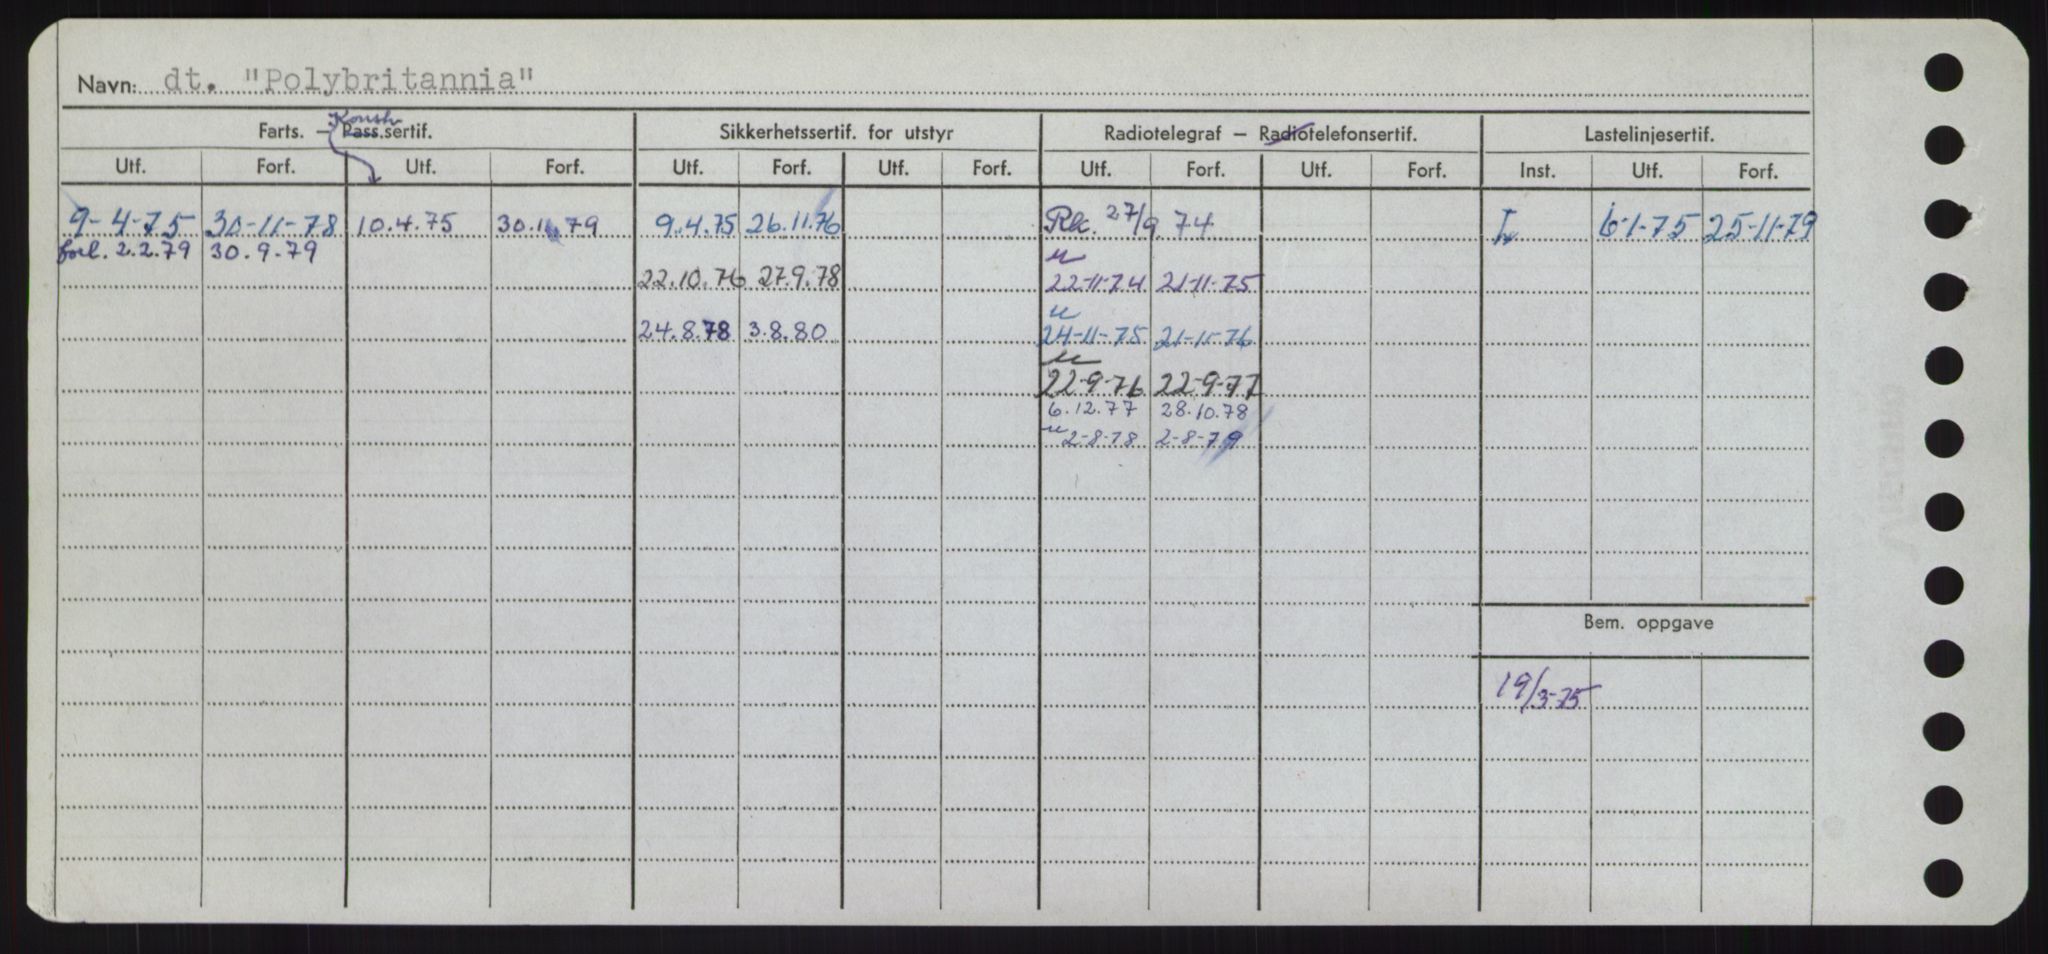 Navn: dt. "Polybritannia"
Konstr.
Farts. – Pass.sertif. Sikkerhetssertif. for utstyr Radiotelegraf – Radiotelefonsertif. Lastelinjesertif.
Utf. Forf. Utf. Forf. Utf. Forf. Utf. Forf. Utf. Forf. Utf. Forf. Inst. Utf. Forf.
9-4-75 30-11-78 10.4.75 30.11.79 9.4.75 26.11.76 27/9 74 L 6-1-75 25-11-79
forl. 2.2.79 30.9.79
22.10.76 27.9.78 22-11-74 21-11-75
24.8.78 3.8.80 24-11-75 21-11-76
22-9-76 22-9-77
6.12.77 28.10.78
2-8-78 2-8-79
Bem. oppgave
19/3-75